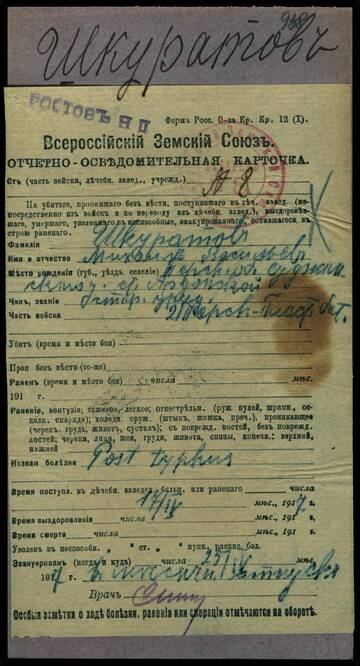 Шкуратовъ
РОСТОВЪ Н Д
Форма Росс. О-ва Кр. Кр. 12 (X).
Всероссійскій Земскій Союзъ.
ОТЧЕТНО-ОСВѢДОМИТЕЛЬНАЯ КАРТОЧКА.
Отъ (часть войска, лѣчебн. завед., учрежд.) № 8
На убитаго, пропавшаго безъ вѣсти, поступившаго въ лѣч. завед. (не-
посредственно изъ войскъ и по переводу изъ лѣчебн. завед.), выздоровѣв-
шаго, умершаго, уволеннаго въ неспособные, эвакуированнаго, оставшагося въ
строю раненаго.
Фамилія Шкуратовъ
Имя и отчество Михаилъ
Мѣсто рожденія (губ., уѣздъ, селеніе) Терской
Чинъ, званіе
Часть войска 2 Терск. Пласт. бат.
Убитъ (время и мѣсто боя)
Проп. безъ вѣсти (то-же)
Раненъ (время и мѣсто боя) числа мѣс.
191 г.
Раненіе, контузія: тяжелое, легкое; огнестрѣльн. (руж. пулей, шрапн., оскол-
колк. снаряда); холодн. оруж. (штыкъ, шашка, проч.), проникающее
(черепъ, грудь, животъ, суставъ); съ поврежд. костей, безъ поврежд.
костей; черепа, лица, шеи, груди, живота, спины, конечн.: верхней,
нижней
Назван. болѣзни Post typhus
Время поступл. въ лѣчебн. завед. больн. или раненаго числа
17/IV мѣс. 1917 г.
Время выздоровленія числа мѣс., 191 г.
Время смерти числа мѣс., 191 г.
Уволенъ въ неспособн. „ ст. „ пунк. распис. бол.
Эвакуированъ (когда и куда) 25/IV мѣс.
1917 въ
Врачъ
Особыя замѣтки о ходѣ болѣзни, раненія или операціи отмѣчаются на оборотѣ.